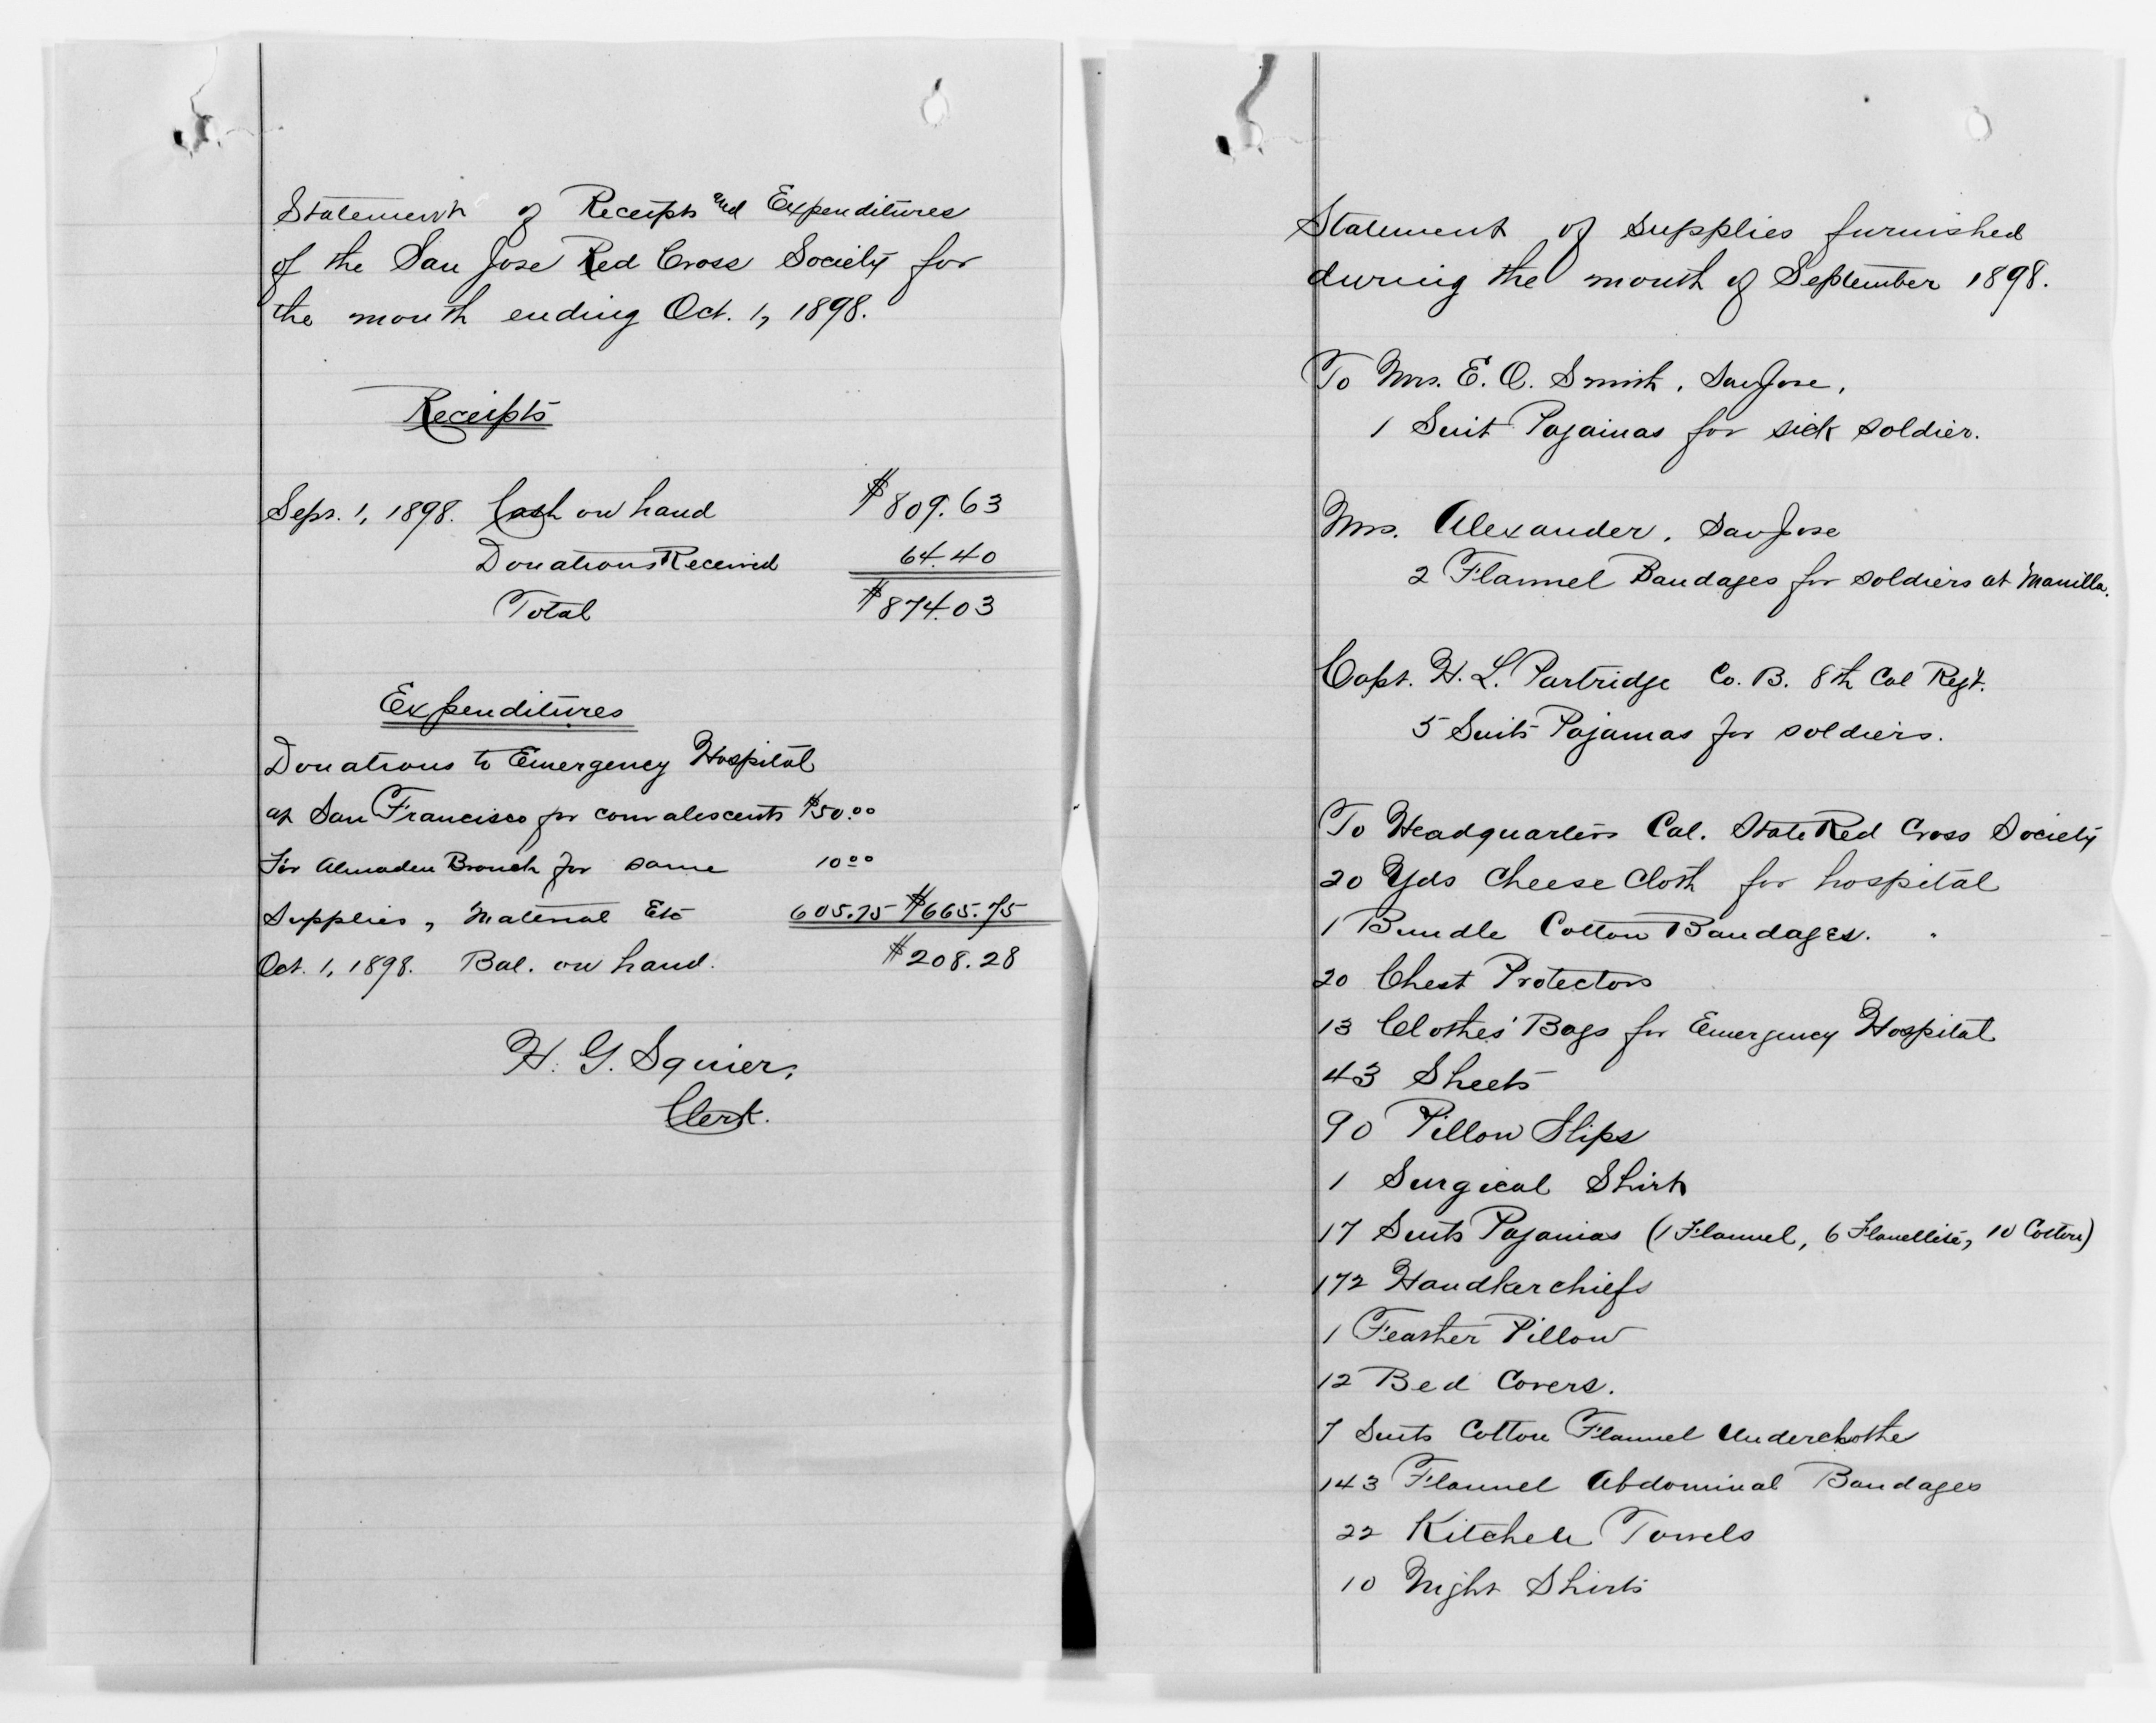 Statement of Receipts and Expenditures
of the San Jose Red Cross Society for
the month ending Oct. 1, 1898.
Receipts
Sept. 1, 1898. Cash on hand $809.63
Donations Received 64.40
Total $874.03
Expenditures
Donations to Emergency Hospital
at San Francisco for convalescents $50.00
For Almaden Branch for same 10.00
Supplies, Material Etc 605.75 $665.75
Oct. 1, 1898. Bal. on hand. $208.28
H. G. Squier,
Clerk.
Statement of supplies furnished
during the month of September 1898.
To Mrs. E. O. Smith, San Jose,
1 Suit Pajamas for sick soldier.
Mrs. Alexander, San Jose
2 Flannel Bandages for soldiers at Manilla.
Capt. H. L. Partridge Co. B. 8th Cal Regt.
5 Suits Pajamas for soldiers.
To Headquarters Cal. State Red Cross Society
20 Yds Cheese Cloth for hospital
1 Bundle Cotton Bandages.
20 Chest Protectors
13 Clothes' Bags for Emergency Hospital
43 Sheets
90 Pillow Slips
1 Surgical Shirt
17 Suits Pajamas (1 Flannel, 6 Flanellite, 10 Cotton)
172 Handkerchiefs
1 Feather Pillow
12 Bed Covers.
7 Suits Cotton Flannel Underclothe
143 Flannel Abdominal Bandages
22 Kitchen Towels
10 Night Shirts